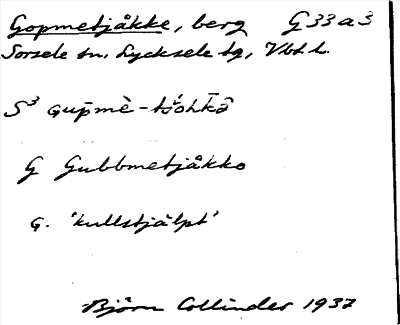 Gopmetjåkke, berg G 33 a 3
Sorsele sn, Lycksele tg, Vbt l.
S³ gup̄mè-tśoh̄kå̄
G Gubbmetjåkko
G. 'kullstjälpt'
Björn Collinder 1937